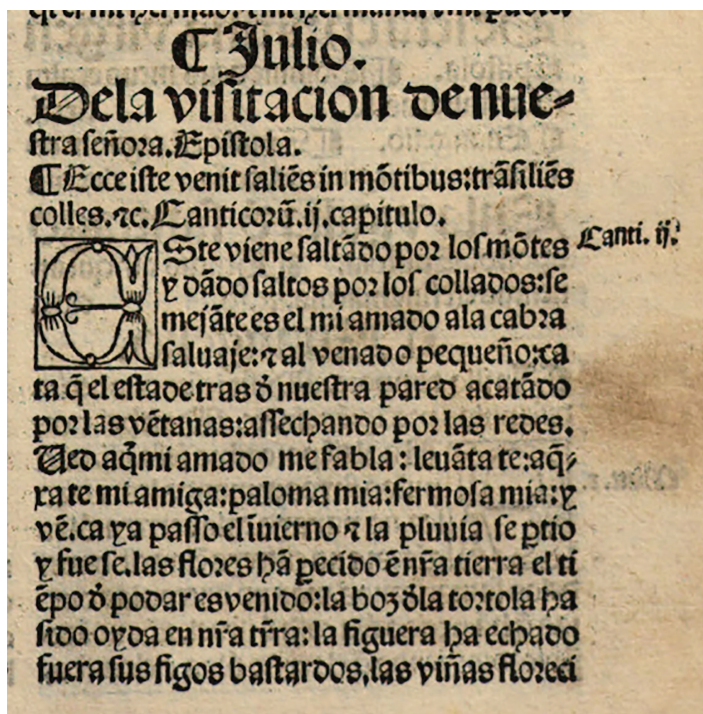 ¶ Julio.
Dela visitacion de nue-
stra señora. Epistola.
¶ Ecce iste venit saliẽs in mõtibus: trãsiliẽs
colles. ⁊c. Canticorũ. ij. capitulo.
ESte viene saltãdo por los mõtes
Canti. ij.
y dãdo saltos por los collados: se
mejãte es el mi amado ala cabra
saluaje: ⁊ al venado pequeño: ca
ta q̃ el esta de tras đ nuestra pared acatãdo
por las vẽtanas: assechando por las redes.
Ued aq̃ mi amado me fabla: leuãta te: aq̃-
xa te mi amiga: paloma mia: fermosa mia: y
vẽ. ca ya passo el ĩuierno ⁊ la pluuia se ꝑtio
y fue se. las flores hã ꝑecido ẽ nr̃a tierra el ti
ẽpo đ podar es venido: la boz đla tortola ha
sido oyda en nr̃a tr̃ra: la figuera ha echado
fuera sus figos bastardos, las viñas floreci